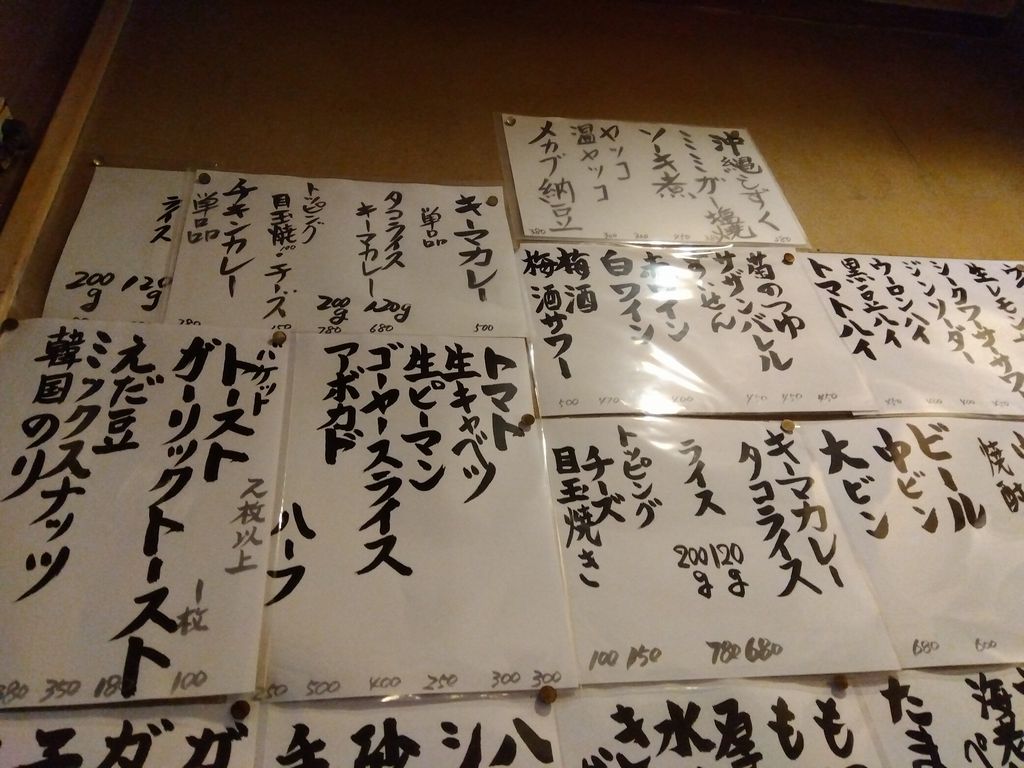 沖縄もずく
ミミガー塩焼
ソーキ煮
ヤッコ
温ヤッコ
メカブ納豆
380 300 300 450 580
キーマカレー
単品
500
タコライス
キーマカレー
120g 680
200g 780
トッピング
目玉焼…チーズ
150
チキンカレー
単品
ライス
120g
200g
菊のつゆ
サザンバレル
赤ワイン
白ワイン
梅酒
梅酒サワー
500 470 450 450 450
シークワサーサワー
ジンソーダー
ウーロンハイ
黒豆ハイ
トマトハイ
バケット
トースト
2枚以上
ガーリックトースト
1枚
100
えだ豆
ミックスナッツ
350
韓国のり
トマト
生キャベツ
生ピーマン
ゴーヤースライス
アボカド
ハーフ
250 500 400 250 300 300
キーマカレー
タコライス
ライス
120g 680
200g 780
トッピング
チーズ
目玉焼き
100 150
焼酎
ビール
中ビン
大ビン
680 600